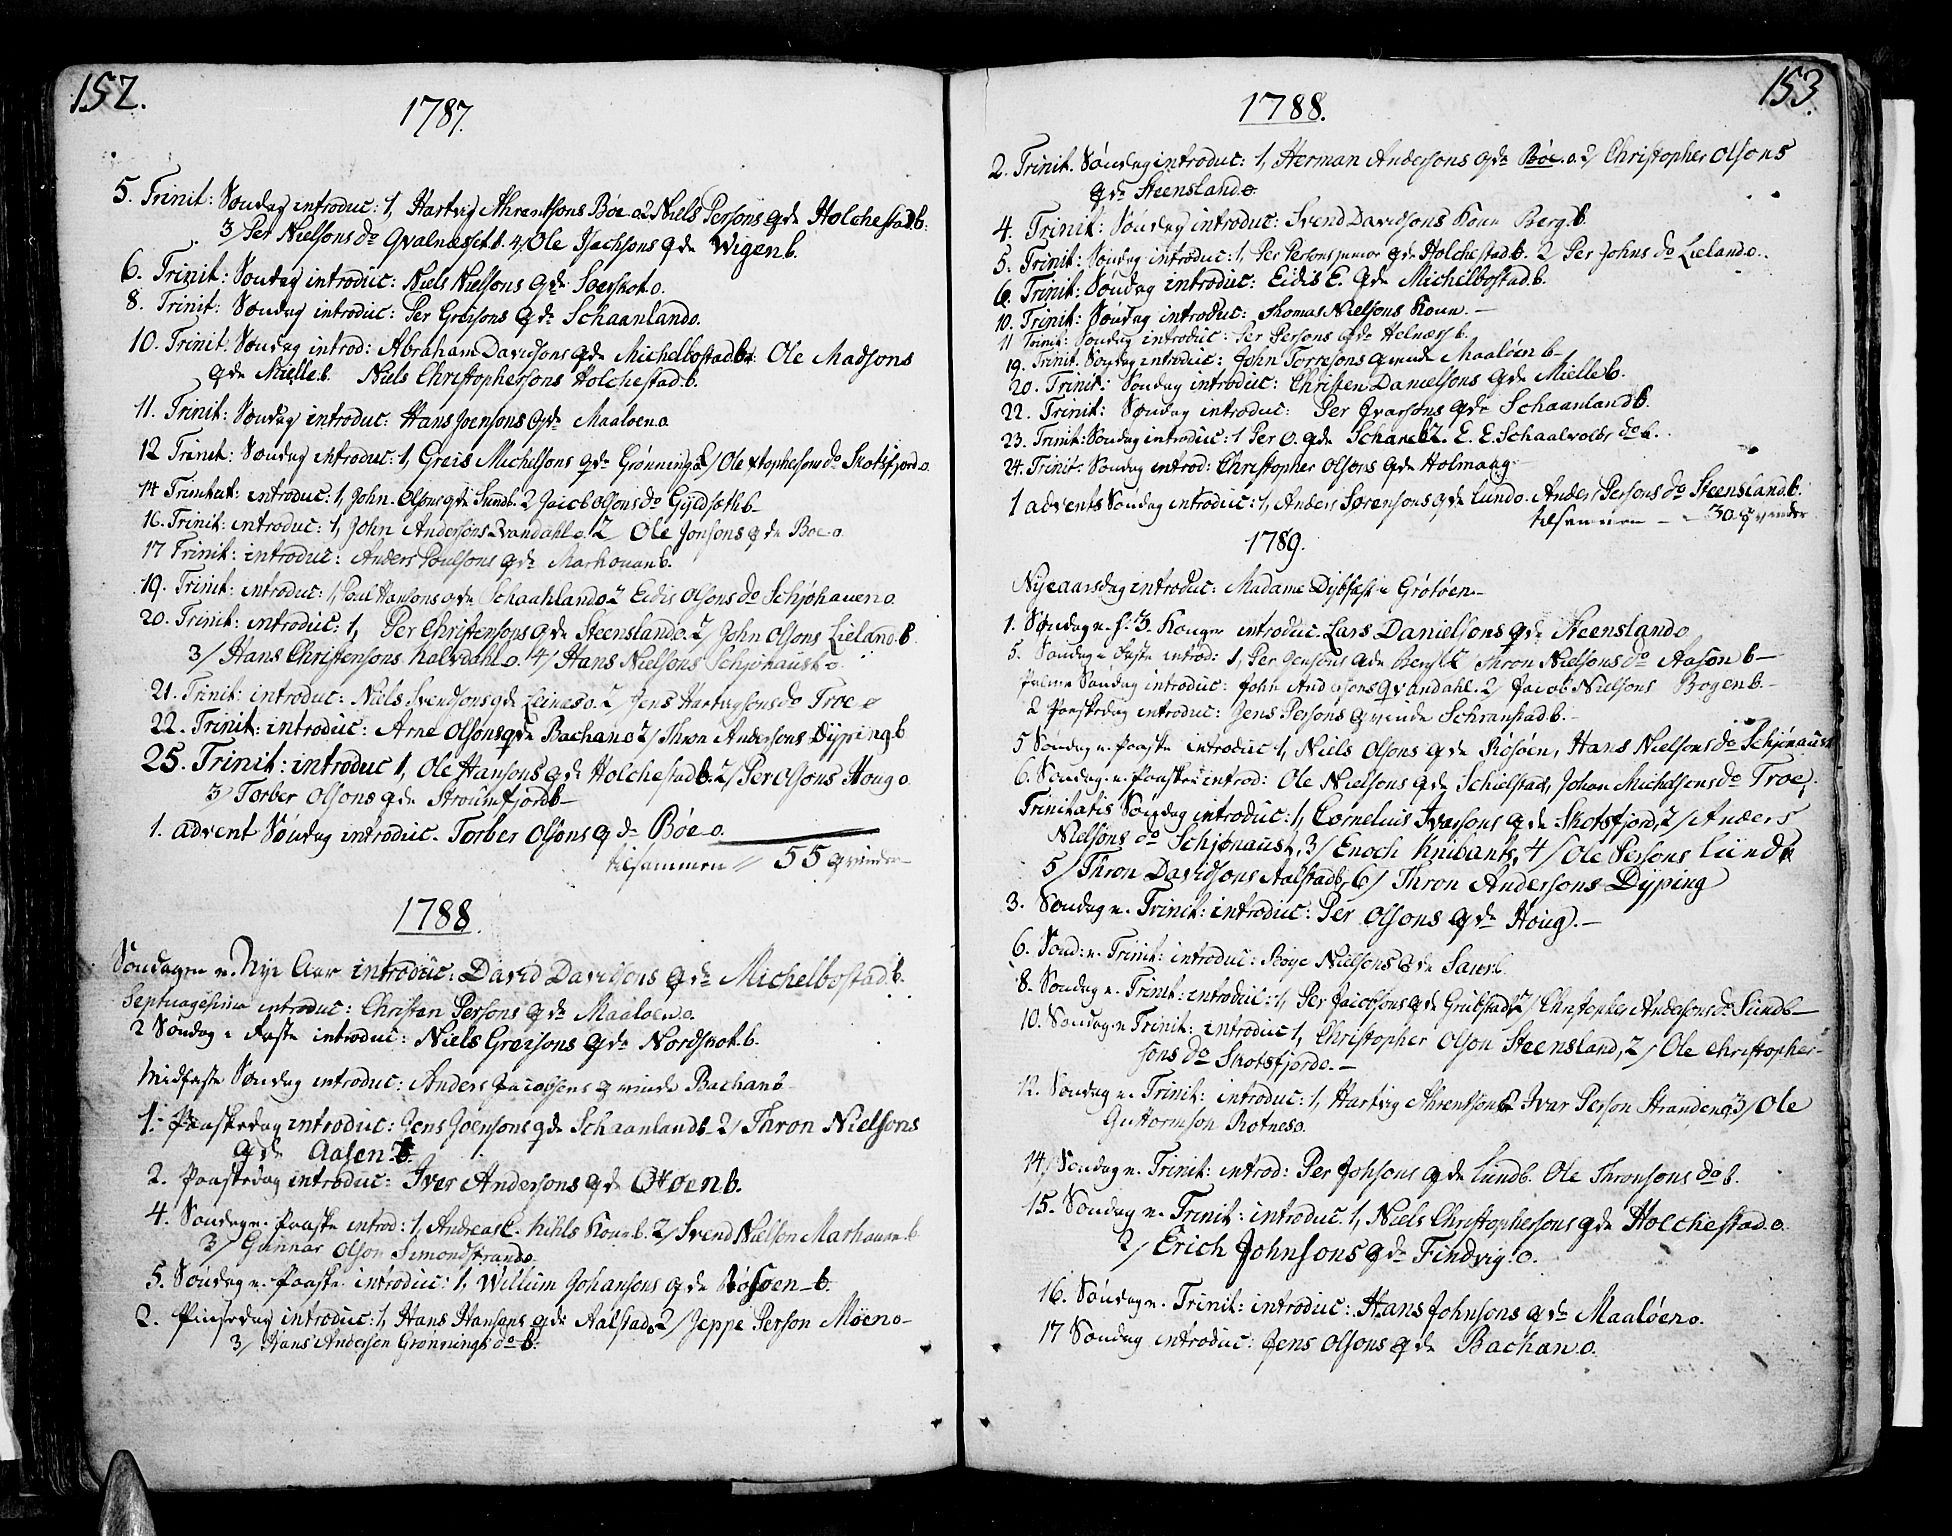 152.
1787.
5. Trinit: Søndag introduc: 1, Hartvig Ahrentsons Bøe o 2 Niels Persons qde Holchestad b.
3/ Per Nielsons do Qvalnæsset b. 4/ Ole Isachsons qde Wigen b.
6. Trinit: Søndag introduc: Niels Nielsons qde o.
8. Trinit: Søndag introduc: Per Greisons qde Schaanland o.
10. Trinit: Søndag introd: Abraham Davidsons qde Michelbostad b Ole Madsons
qde Mielle b. Niels Christophersons Holchestad b.
11. Trinit: Søndag introduc: Hans Joensons qde Maaløen o
12 Trinit: Søndag introduc: 1, Greis Michelsons qde Grønning 2/ Ole Xtophersons do Skotsfjord o
14 Trinitat: introduc: 1, John Olsons qde Sund b. 2 Jacob Olsons do Gyldsæth b
16. Trinit: introduc: 1, John Andersøns Qvandahl o. 2 Ole Jonsons qde Bøe o
17 Trinit: introduc: Anders Poulsons qde Marhouan b.
19. Trinit: introduc: 1, Paul Hansons qde Schaahland o 2 Eidis Olsons do Schjøhauen o.
20. Trinit: introduc: 1, Per Christensons qde Steensland o. 2/ John Olsons Lieland b
3/ Hans Christensons Kalvdahl o. 4/ Hans Nielsons Schjøhaust o
21. Trinit: introduc: Niels Svendsons qde Leines o. 2/ Jens Hartvigsons do Troe o
22. Trinit: introduc: Arne Olsons qde Bachan o 2/ Thron Andersons Dyping b
25. Trinit: introduc 1, Ole Hansons qde Holchestad b. 2/ Per Olsons Houg o
3/ Torber Olsons qde Stroumfjord b
1. advent Søndag introduc. Torber Olsons qde Bøe o.
tilsammen // 55 qvinder
1788.
Søndagen n. Nye Aar introduc: David Davidsons qde Michelbostad b.
Septuagesima introduc: Christan Persons qde Maaløen o.
2 Søndag i Faste introduc: Niels Greisons qde Nordskot b.
Midfaste Søndag introduc: Anders Jacobsens qvinde Bachan b
1. Paaskedag introduc: Jens Joensons qde Schaanland b 2/ Thron Nielsons
qde Aasen b.
2. Paaskedag introduc: Iver Andersons qde b.
4. Søndag n. Paaske introd: 1, Andreas C. Kone b. 2/ Svend Nielson Marhauan b
3/ Gunnar Olson Simonstrand o.
5. Søndag n. Paaske introduc: 1, Willum Johansons qde Røsøen b.
2. Pinsedag introduc: 1, Hans Hansons qde Aalstad o 2/ Jeppe Person Møen o
3/ Hans Andersen Grønnings do b.
153.
1788.
2. Trinit: Søndag introduc: 1, Herman Andersons qde Bøe o. 2/ Christopher Olsons
qde Steensland o
4. Trinit: Søndag introduc: Svend Davidsons Kone Berg b.
5. Trinit: Søndag introduc: 1, Per Persons junior qde Holchestad b. 2 Per Johns do Lieland o.
6. Trinit: Søndag introduc: Eidis E. qde Michelbostad b.
10. Trinit: Søndag introduc: Thomas Nielsons Kone.
11 Trinit: Søndag introduc: Per Persons qde Helnæss b.
19. Trinit Søndag introduc: John Torresons qvinde Maaløen b
20. Trinit: Søndag introduc: Christen Danielsons qde Mielle b.
22. Trinit: Søndag introduc: Per Ivarsons qde Schaanland b.
23. Trinit: Søndag introduc: 1 Per O. qde b 2. E. E. Schaalvolds do b.
24. Trinit: Søndag introd: Christopher Olsons qde Holmaag
1 advents Søndag introduc: 1, Anders Sørensons qde Lund o. Anders Persons do Steensland b.
tilsammen 30 qvinder
1789.
Nyeaarsdag introduc: Madame Dybfæst i Grøtøen
1. Søndag n. h. 3. Konger introduc. Lars Danielsons qde Steensland o
5. Søndag i Faste introd: 1, Per Jensons qde Berg Thron Nielsons do Aasen b
Palme Søndag introduc: John Andersons Qvandahl. 2/ Jacob Nielsons Bogen b.
2 Paaskedag introduc: Jens Persons qvinde Schranstad b.
5 Søndag n. Paaske introduc 1, Niels Olsons qde Røsøen, Hans Nielsons do Schjønaust
6. Søndag n. Paaske introd: Ole Nielsons qde Schielstad, Johan Michelsens do Troe.
Trinitatis Søndag introduc: 1, Cornelius Iversons qde Skotsfjord, 2/ Anders
Nielsons do Schjønaust, 3/ Enoch Knibants, 4/ Ole Persons Lund
5/ Thron Davidsons Aalstad b, 6/ Thron Andersons Dyping
3. Søndag n. Trinit: introduc: Per Olsons qde Houg.
6. Sønd: n. Trinit: introduc: Boye Nielsons qde
8. Søndag n. Trinit: introduc: 1, Per Jacobsons qde Grubstad 2/ Christopher Andersons do Sund b
10. Søndag n Trinit: introduc 1, Christopher Olson Steensland, 2/ Ole Christopher-
sons do Skotsfjord o.
12. Søndag n. Trinit: introduc: 1, Hartvig Ahrentson 2 Ivar Person Stranden 3/ Ole
Guttormson Rotnes o.
14/ Søndag n. Trinit: introd: Per Johsons qde Lund b. Ole Thronsons do b.
15. Søndag n. Trinit: introduc. 1, Niels Christophersons qde Holchestad o.
2/ Erich Johnsons qde Findvig. o.
16. Søndag n. Trinit: introduc: Hans Johnsons qde Maaløen o.
17 Søndag introduc: Jens Olsons qde Bachan o.